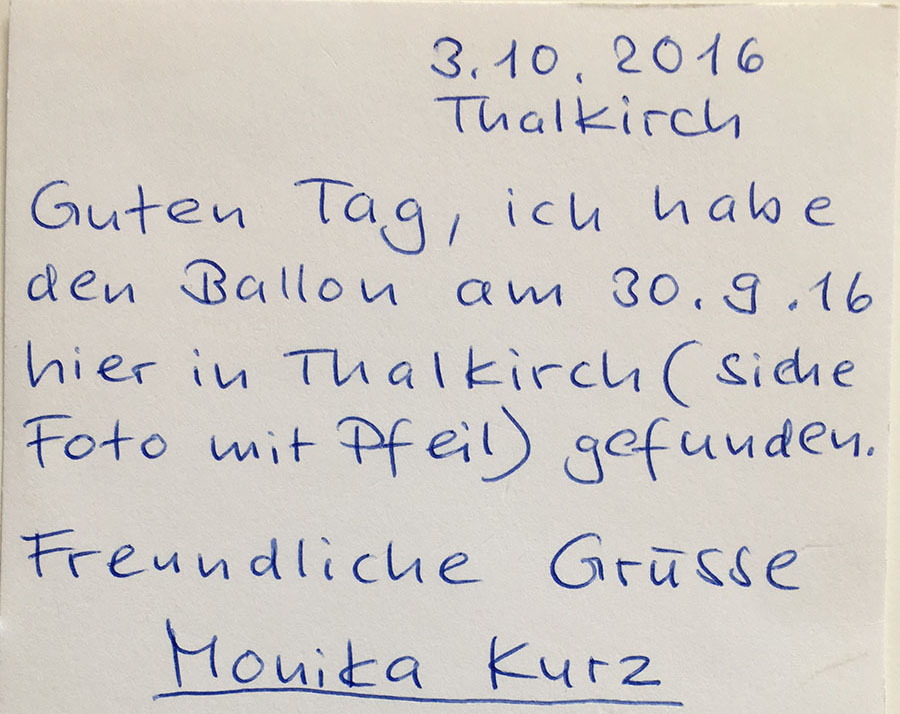 3.10.2016
Thalkirch
Guten Tag, ich habe
den Ballon am 30.9.16
hier in Thalkirch (siehe
Foto mit Pfeil) gefunden.
Freundliche Grüsse
Monika Kurz